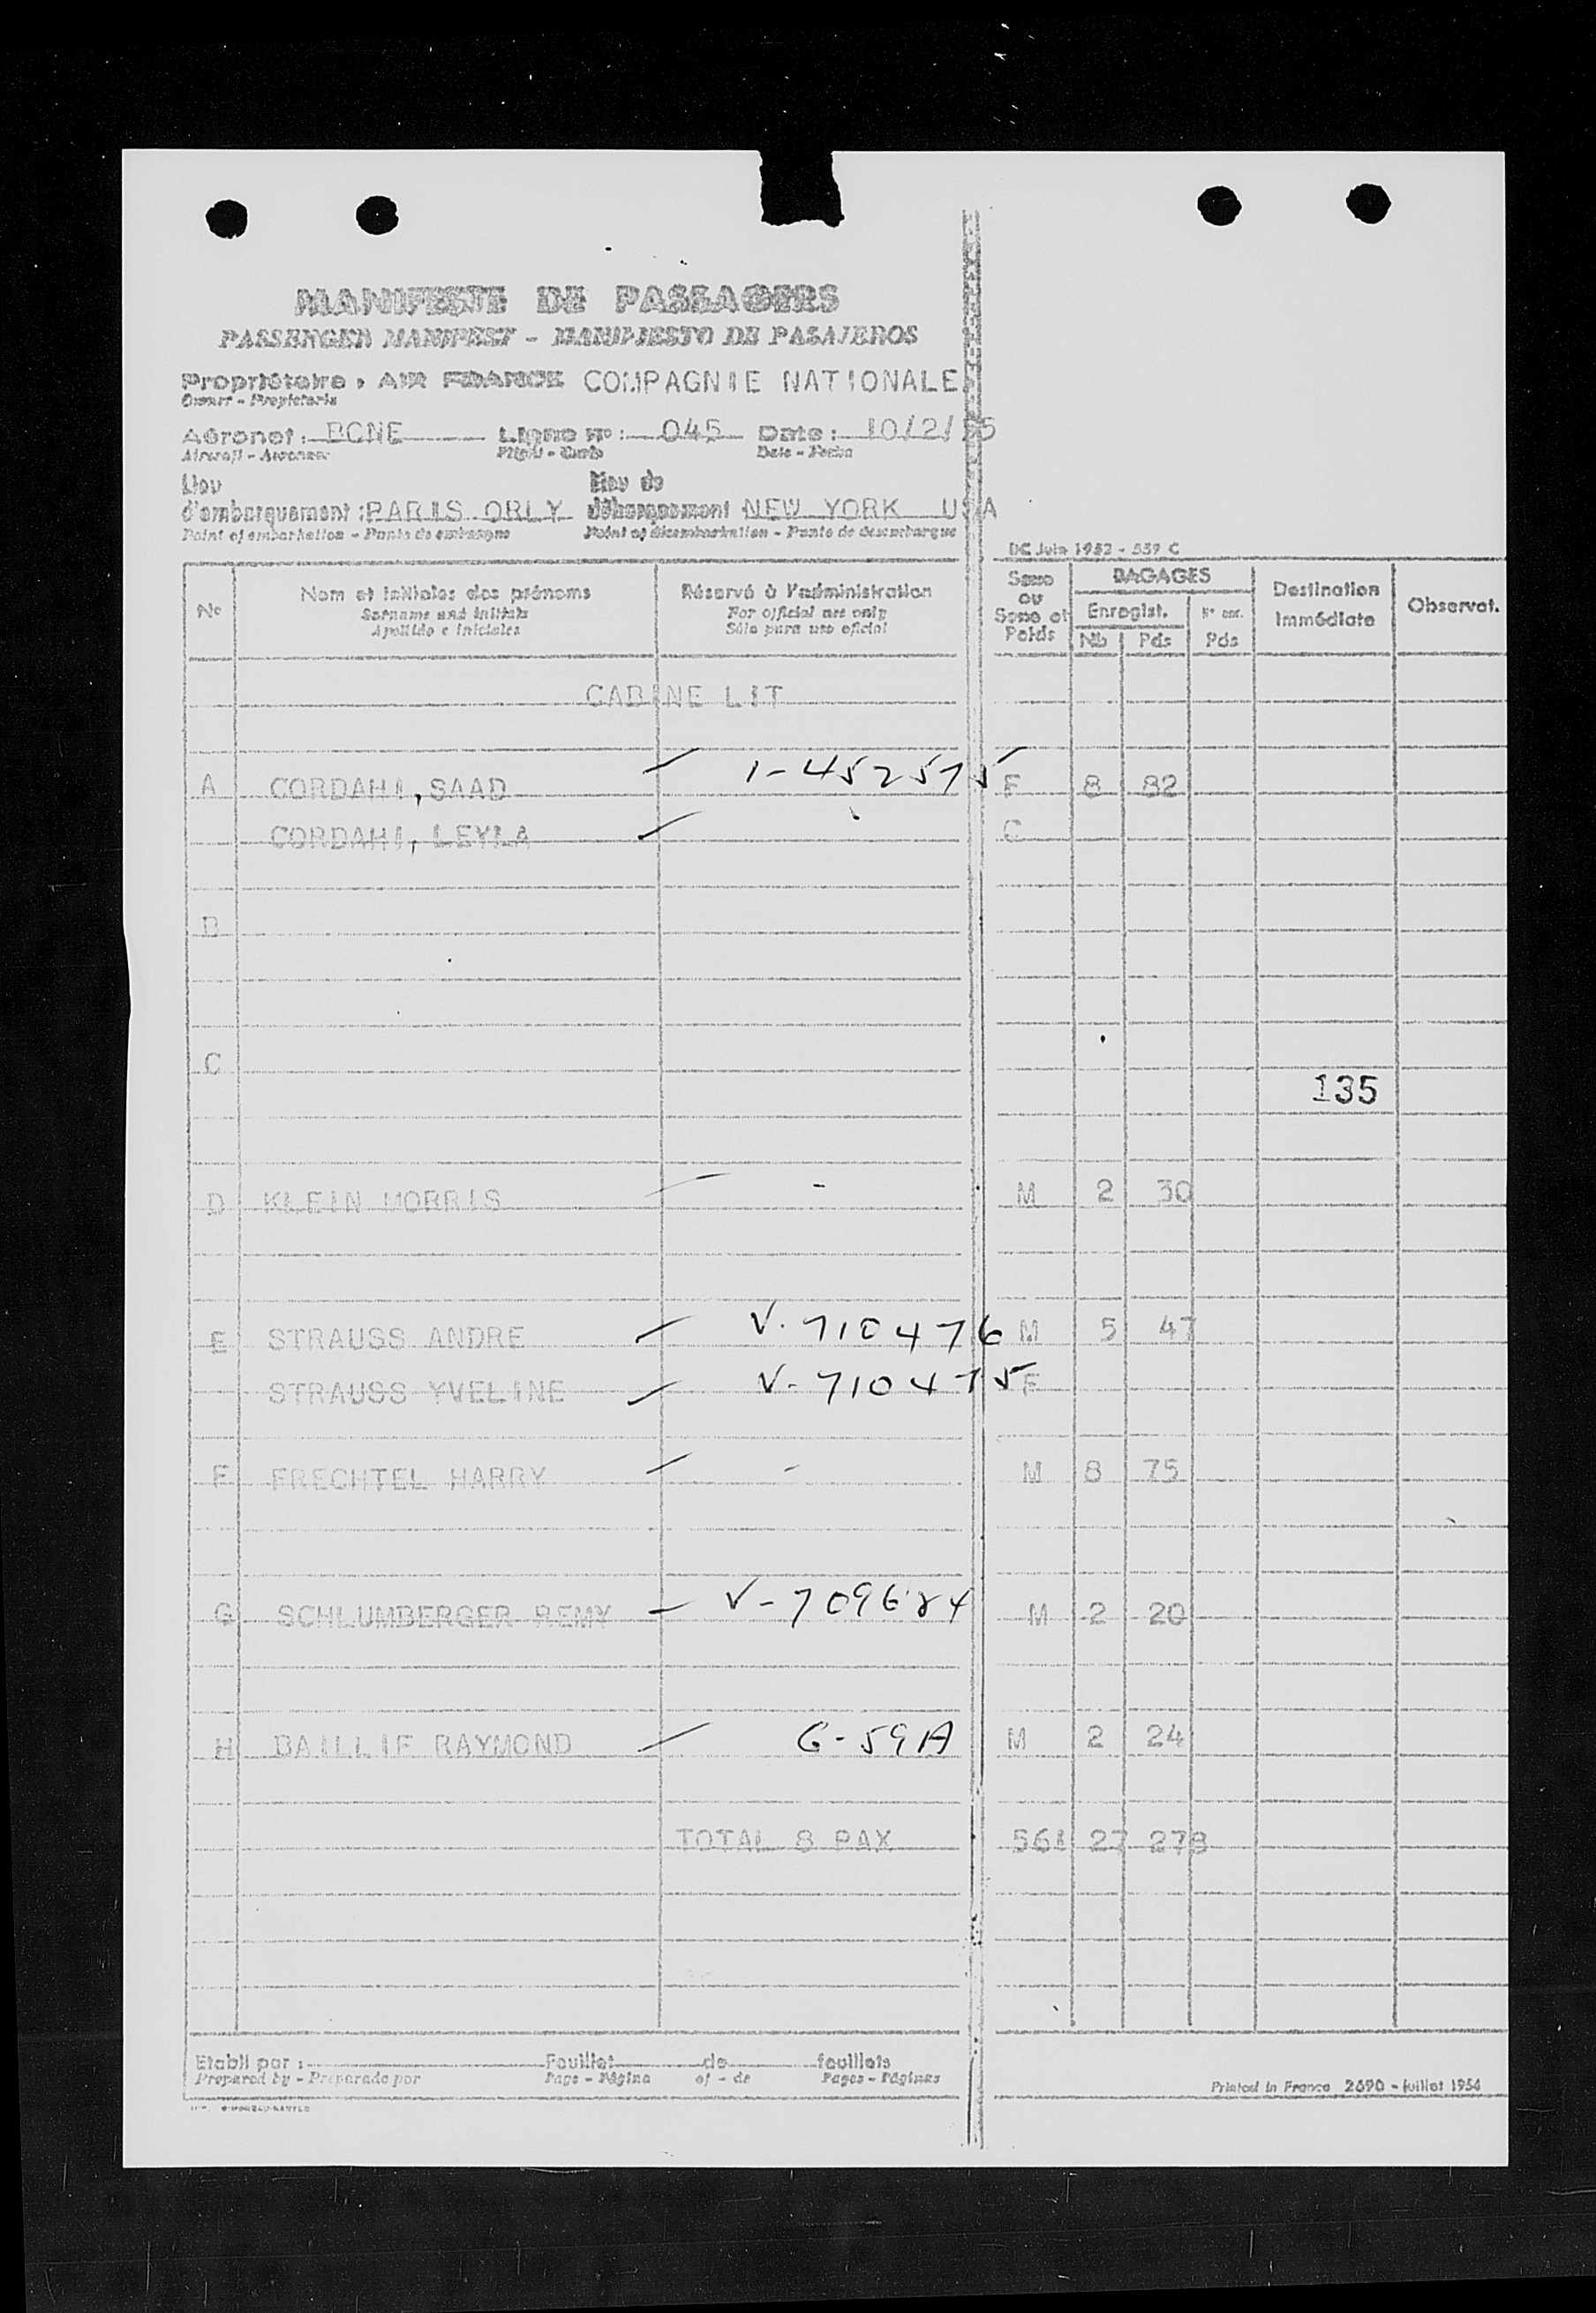 MANIFESTE DE PASSAGERS
PASSENGER MANIFEST - MANIFIESTO DE PASAJEROS
Propriétaire : AIR FRANCE COMPAGNIE NATIONALE
Owner - Propietario
Aéronef : BCNE Ligne No : 045 Date : 10/2/55
Aircraft - Aeronave Flight - Vuelo Date - Fecha
Lieu d'embarquement : PARIS ORLY Lieu de débarquement NEW YORK USA
Point of embarkation - Punto de embarque Point of disembarkation - Punto de desembarque
DC Juin 1952 - 559 C
No Nom et initiales des prénoms Réservé à l'administration Sexe ou Sexe et Poids BAGAGES Destination Immédiate Observat.
Surname and initials For official use only Enregist. Nº enr.
Apellido e iniciales Sólo para uso oficial Nb Pds Pds
CABINE LIT
A CORDAHI, SAAD 1-452575 F 8 82
CORDAHI, LEYLA C
B
C
135
D KLEIN MORRIS - M 2 30
E STRAUSS ANDRE V-710476 M 5 47
STRAUSS YVELINE V-710475 F
F FRECHTEL HARRY - M 8 75
G SCHLUMBERGER REMY V-709684 M 2 20
H BAILLIF RAYMOND G-59A M 2 24
TOTAL 8 PAX 561 27 278
Etabli par : Feuillet de feuillets
Prepared by - Preparado por Page - Página of - de Pages - Páginas
Printed in France 2690 - juillet 1954